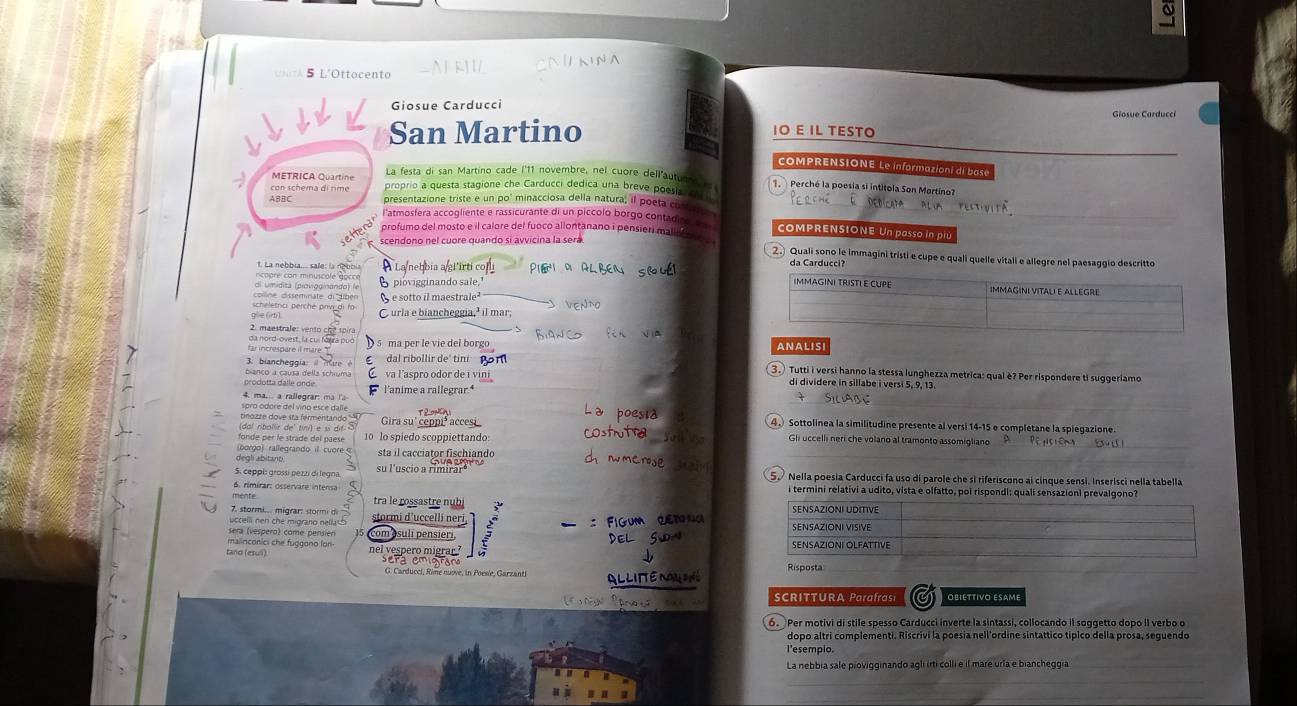 UNITÀ 5 L'Ottocento
Giosue Carducci
San Martino
METRICA Quartine
con schema di rime
ABBC
La festa di san Martino cade l'11 novembre, nel cuore dell'autunno
proprio a questa stagione che Carducci dedica una breve poesia
presentazione triste e un po' minacciosa della natura, il poeta
l'atmosfera accogliente e rassicurante di un piccolo borgo
profumo del mosto e il calore del fuoco allontanano i pensieri
scendono nel cuore quando si avvicina la sera.
A La nebbia a gl'irti colli
B piovigginando sale,¹
B e sotto il maestrale²
C urla e biancheggia,³ il mar;
D 5 ma per le vie del borgo
E dal ribollir de' tini
E va l'aspro odor de i vini
F l'anime a rallegrar.⁴
Gira su' ceppi⁵ accesi
10 lo spiedo scoppiettando:
sta il cacciator fischiando
su l'uscio a rimirar⁶
tra le rossastre nubi
stormi d'uccelli neri,
15 com'esuli pensieri,
nel vespero migrar.⁷
G. Carducci, Rime nuove, in Poesie, Garzanti
1. La nebbia... sale: la nebbia
ricopre con minuscole gocce
di umidità (piovigginando) le
colline disseminate di alberi
scheletrici perché privi di fo-
glie (irti).
2. maestrale: vento che spira
da nord-ovest, la cui forza può
far increspare il mare.
3. biancheggia: il mare è
bianco a causa della schiuma
prodotta dalle onde.
4. ma... a rallegrar: ma l'a-
spro odore del vino esce dalle
tinozze dove sta fermentando
(dal ribollir de' tini) e si dif-
fonde per le strade del paese
(borgo) rallegrando il cuore
degli abitanti.
5. ceppi: grossi pezzi di legna.
6. rimirar: osservare intensa-
mente.
7. stormi... migrar: stormi di
uccelli neri che migrano nella
sera (vespero) come pensieri
malinconici che fuggono lon-
tano (esuli).
VENTO
BIANCO PER VIA
BOTTI
TRONCHI
La poesia è
costruita
di numerose
SIMILITUDINE
sera
= FIGURA RETORICA
DEL SUONO
ALLITTERAZIONE
Giosue Carducci
IO E IL TESTO
COMPRENSIONE Le informazioni di base
1. Perché la poesia si intitola San Martino?
PERCHÉ È DEDICATA ALLA FESTIVITÀ
COMPRENSIONE Un passo in più
2. Quali sono le immagini tristi e cupe e quali quelle vitali e allegre nel paesaggio descritto
da Carducci?
IMMAGINI TRISTI E CUPE
IMMAGINI VITALI E ALLEGRE
ANALISI
3. Tutti i versi hanno la stessa lunghezza metrica: qual è? Per rispondere ti suggeriamo
di dividere in sillabe i versi 5, 9, 13.
7 SILLABE
4. Sottolinea la similitudine presente ai versi 14-15 e completane la spiegazione.
Gli uccelli neri che volano al tramonto assomigliano A PENSIERI ESULI
5. Nella poesia Carducci fa uso di parole che si riferiscono ai cinque sensi. Inserisci nella tabella
i termini relativi a udito, vista e olfatto, poi rispondi: quali sensazioni prevalgono?
SENSAZIONI UDITIVE
SENSAZIONI VISIVE
SENSAZIONI OLFATTIVE
Risposta:
SCRITTURA Parafrasi
OBIETTIVO ESAME
6. Per motivi di stile spesso Carducci inverte la sintassi, collocando il soggetto dopo il verbo o
dopo altri complementi. Riscrivi la poesia nell'ordine sintattico tipico della prosa, seguendo
l'esempio.
La nebbia sale piovigginando agli irti colli e il mare urla e biancheggia